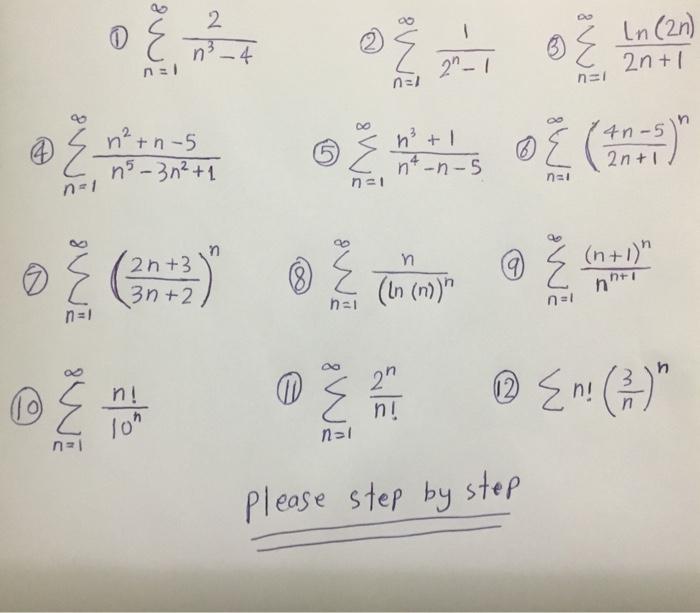 ① ∞∑n=1 2/(n³-4) ② ∞∑n=1 1/(2ⁿ-1) ③ ∞∑n=1 Ln(2n)/(2n+1)
④ ∞∑n=1 (n²+n-5)/(n⁵-3n²+1) ⑤ ∞∑n=1 (n³+1)/(n⁴-n-5) ⑥ ∞∑n=1 ((4n-5)/(2n+1))ⁿ
⑦ ∞∑n=1 ((2n+3)/(3n+2))ⁿ ⑧ ∞∑n=1 n/(ln(n))ⁿ ⑨ ∞∑n=1 (n+1)ⁿ/nⁿ⁺¹
⑩ ∞∑n=1 n!/10ⁿ ⑪ ∞∑n=1 2ⁿ/n! ⑫ ∑ n! (3/n)ⁿ
please step by step